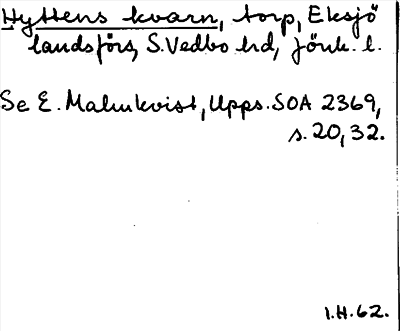 Hyttens kvarn, torp, Eksjö
landsförs, S.Vedbo hd, Jönk. l.
Se E. Malmkvist, Upps. SOA 2369,
s. 20, 32.
I.H.62.